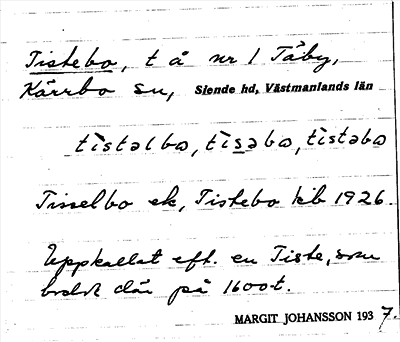 Tistebo, t å nr 1 Täby,
Kärrbo sn, Siende hd, Västmanlands län
tìstəlbω, tìsəbω, tìstəbω
Tisselbo ek, Tistebo kb 1926.
Uppkallat eft. en Tiste, som
bodde där på 1600-t.
MARGIT JOHANSSON 1937.